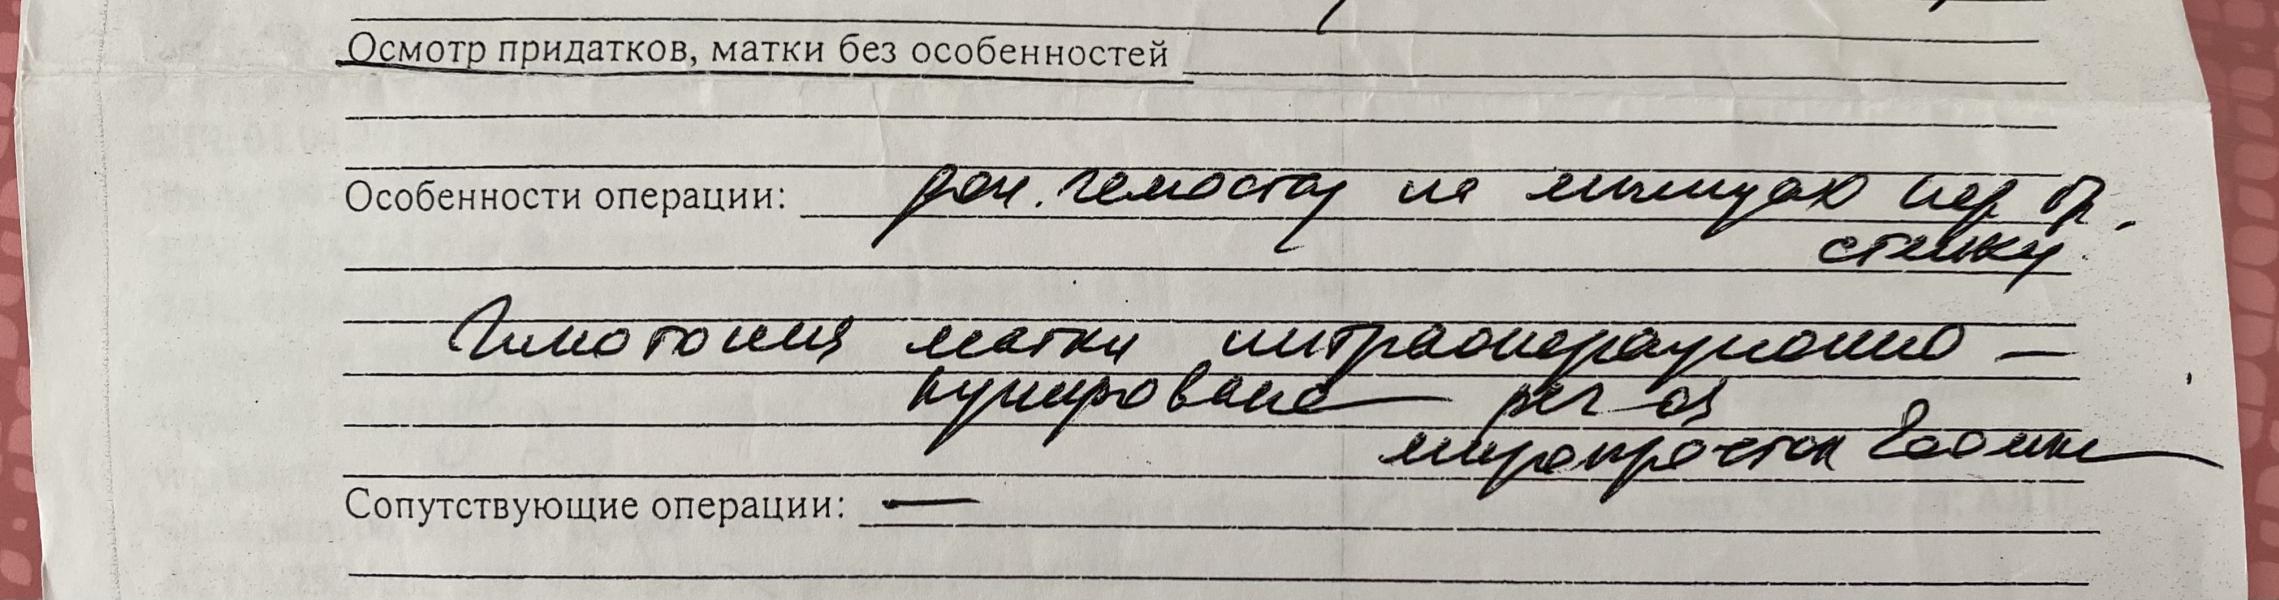 Осмотр придатков, матки без особенностей
Особенности операции: доп. гемостаз на мышцах пер бр.
стенки
Гипотония матки интраоперационно —
купирована per os
миропростол 2 таблетки
Сопутствующие операции: —